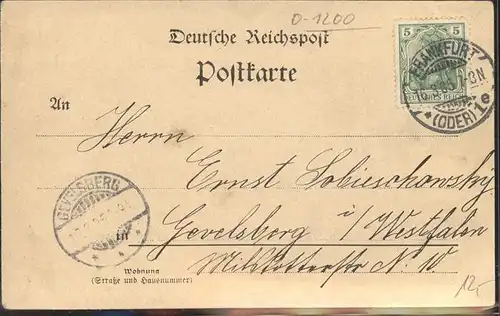 D-1200
Deutsche Reichspost
Postkarte
5 5
DEUTSCHES REICH
FRANKFURT
(ODER) 1e
An
Herrn
Ernst
GEVELSBERG
in Gevelsberg i/Westfalen
N. 10
Wohnung
(Straße und Hausnummer)
12,-